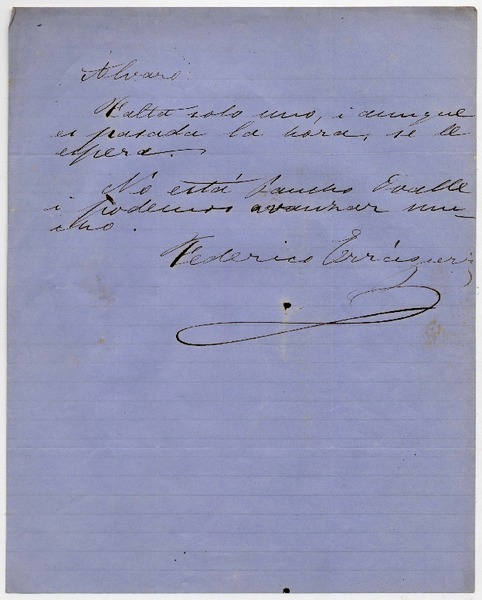 Alvaro:
Falta solo uno, i aunque
es pasada la hora, se le
espera.
No está Sancho Ovalle
i podemos avanzar mu-
cho.
Federico Errázuriz